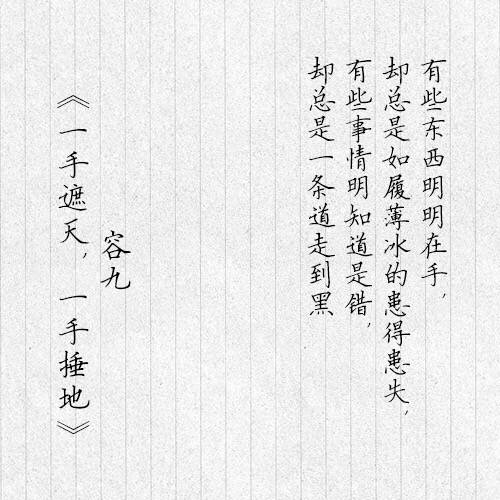 有些东西明明在手，
却总是如履薄冰的患得患失，
有些事情明知道是错，
却总是一条道走到黑
容九
《一手遮天，一手捶地》